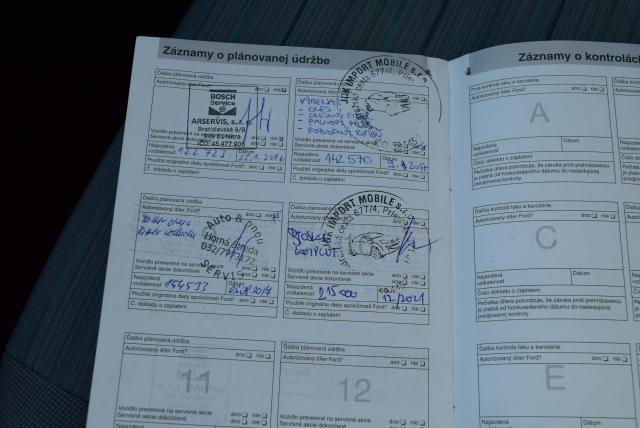 Záznamy o plánovanej údržbe
Ďalšia plánovaná údržba
Autorizovaný díler Ford?
áno nie
BOSCH
Service
ARSERVIS, s.r.o.
Bratislavská 9/9
949 01 Nitra
IČO: 45 477 906
Vozidlo preverené na servisné akcie
Servisné akcie dokončené
Najazdená
vzdialenosť
122 723
Dátum
Použité originálne diely spoločnosti Ford?
áno nie
Č. dokladu o zaplatení
Ďalšia plánovaná údržba
Autorizovaný díler Ford?
áno nie
JDK IMPORT MOBILE s.r.o.
677/4
VÝMENA
- OLEJ
Najazdená
vzdialenosť
142 570
Dátum
Použité originálne diely spoločnosti Ford?
áno nie
Č. dokladu o zaplatení
Ďalšia plánovaná údržba
Autorizovaný díler Ford?
áno nie
Auto & Pneu
Horná Streda
SERVIS
Servisné akcie dokončené
Najazdená
vzdialenosť
154533
Dátum
Použité originálne diely spoločnosti Ford?
áno nie
Č. dokladu o zaplatení
Ďalšia plánovaná údržba
Autorizovaný díler Ford?
áno nie
IMPORT MOBILE s.r.o.
677/4
Vozidlo preverené na servisné akcie
Servisné akcie dokončené
áno nie
Najazdená
vzdialenosť
215000
12/2021
Použité originálne diely spoločnosti Ford?
áno nie
Č. dokladu o zaplatení
Ďalšia plánovaná údržba
Autorizovaný díler Ford?
áno nie
11
Vozidlo preverené na servisné akcie
Servisné akcie dokončené
áno nie
áno nie
Najazdená
Dátum
Ďalšia plánovaná údržba
Autorizovaný díler Ford?
áno nie
12
Vozidlo preverené na servisné akcie
Servisné akcie dokončené
áno nie
áno nie
Najazdená
Dátum
Záznamy o kontrolách
Prvá kontrola laku a karosérie
Autorizovaný díler Ford?
A
Najazdená
vzdialenosť
Dátum
Číslo dokladu o zaplatení
Pečiatka dílera potvrdzuje, že záruka proti prehrdzaveniu
je platná od horeuvedeného dátumu do nasledujúcej
predpísanej kontroly
Ďalšia kontrola laku a karosérie
Autorizovaný díler Ford?
C
Najazdená
vzdialenosť
Dátum
Číslo dokladu o zaplatení
Pečiatka dílera potvrdzuje, že záruka proti prehrdzaveniu
je platná od horeuvedeného dátumu do nasledujúcej
predpísanej kontroly
Ďalšia kontrola laku a karosérie
Autorizovaný díler Ford?
E
Najazdená
Dátum